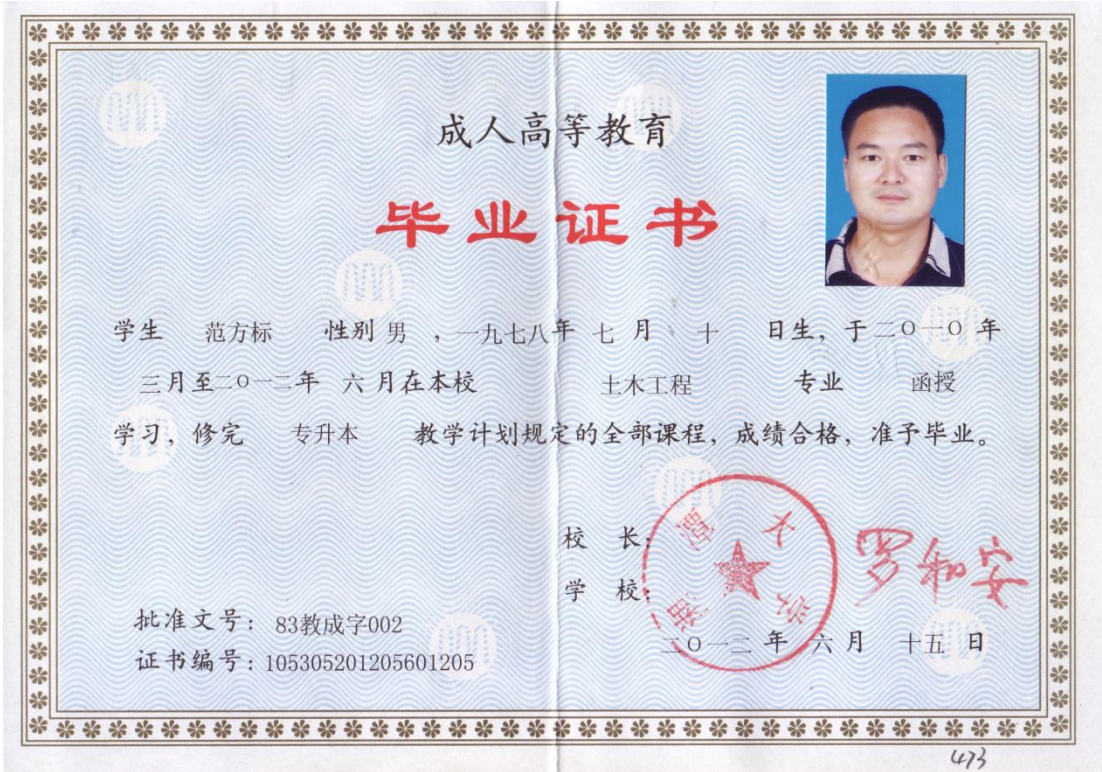 成人高等教育
毕业证书
学生 范方标 性别 男 ，一九七八年 七 月 十 日生，于二〇一〇 年
三月至二〇一二年 六 月在本校 土木工程 专业 函授
学习，修完 专升本 教学计划规定的全部课程，成绩合格，准予毕业。
校 长：罗和安
学 校：
湘潭大学
批准文号：83教成字002
二〇一二 年 六 月 十五 日
证书编号：105305201205601205
473